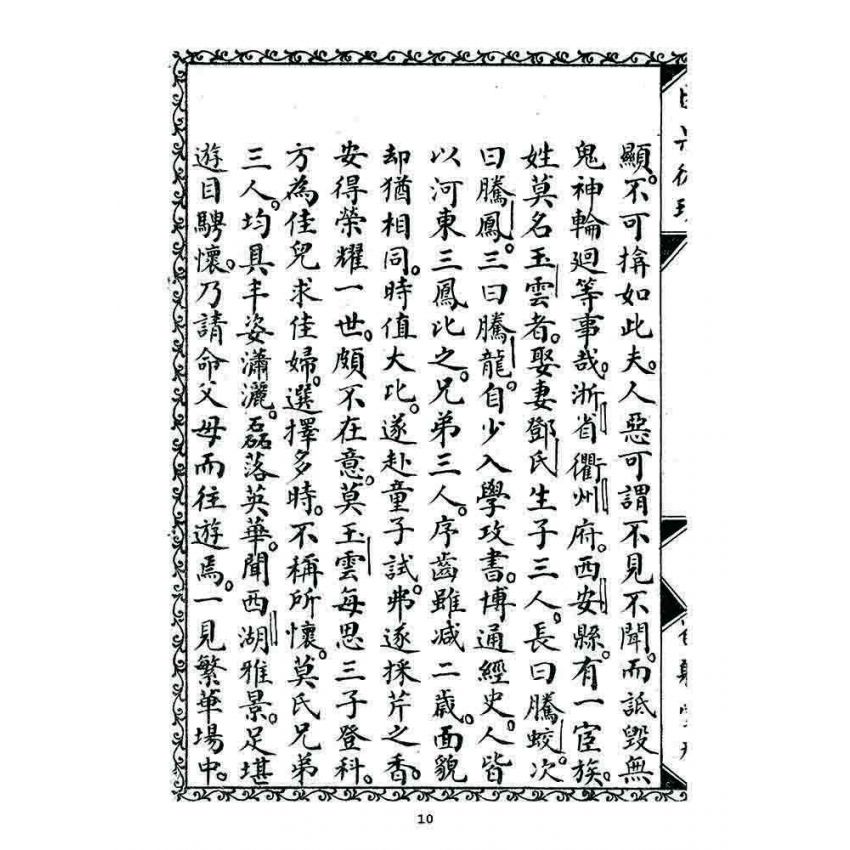 顯。不可揜如此夫。人惡可謂不見不聞。而詆毀無
鬼神輪廻等事哉。浙省衢州府。西安縣。有一宦族。
姓莫名玉雲者。娶妻鄧氏生子三人。長曰騰蛟。次
曰騰鳳。三曰騰龍。自少入學攻書。博通經史。人皆
以河東三鳳比之。兄弟三人。序齒雖减二歲。面貌
却猶相同。時值大比。遂赴童子試。弗遂採芹之香。
安得榮耀一世。頗不在意。莫玉雲每思三子登科。
方為佳兒求佳婦。選擇多時。不稱所懷。莫氏兄弟
三人。均具丰姿瀟灑。磊落英華。聞西湖雅景。足堪
遊目騁懷。乃請命父母而往遊焉。一見繁華場中。
10